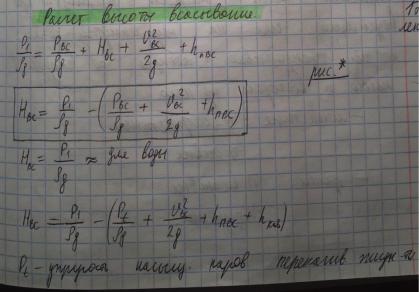 Расчет высоты всасывания.
P₁/ρg = Pвс/ρg + Hвс + υвс²/2g + hпвс
рис.*
Hвс = P₁/ρg − (Pвс/ρg + υвс²/2g + hпвс)
Hвс = P₁/ρg ≈ для воды
Hвс = P₁/ρg − (Pt/ρg + υвс²/2g + hпвс + hкав)
Pt - упругость насыщ. паров перекачив. жидк-ти